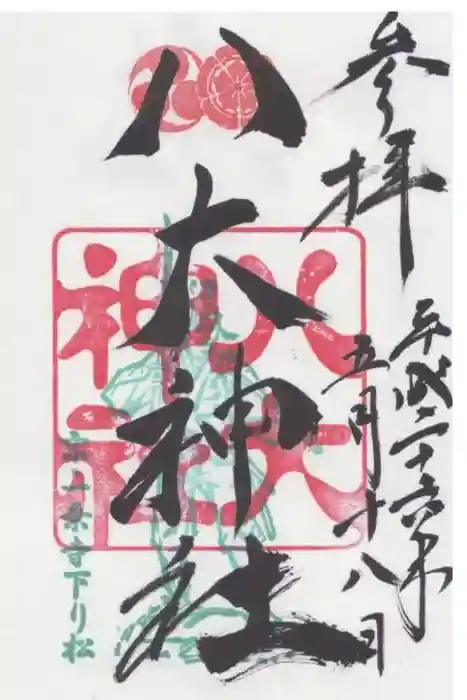 参拝
平成二十六年
五月十八日
八大神社
八大神社
京一乗寺下り松